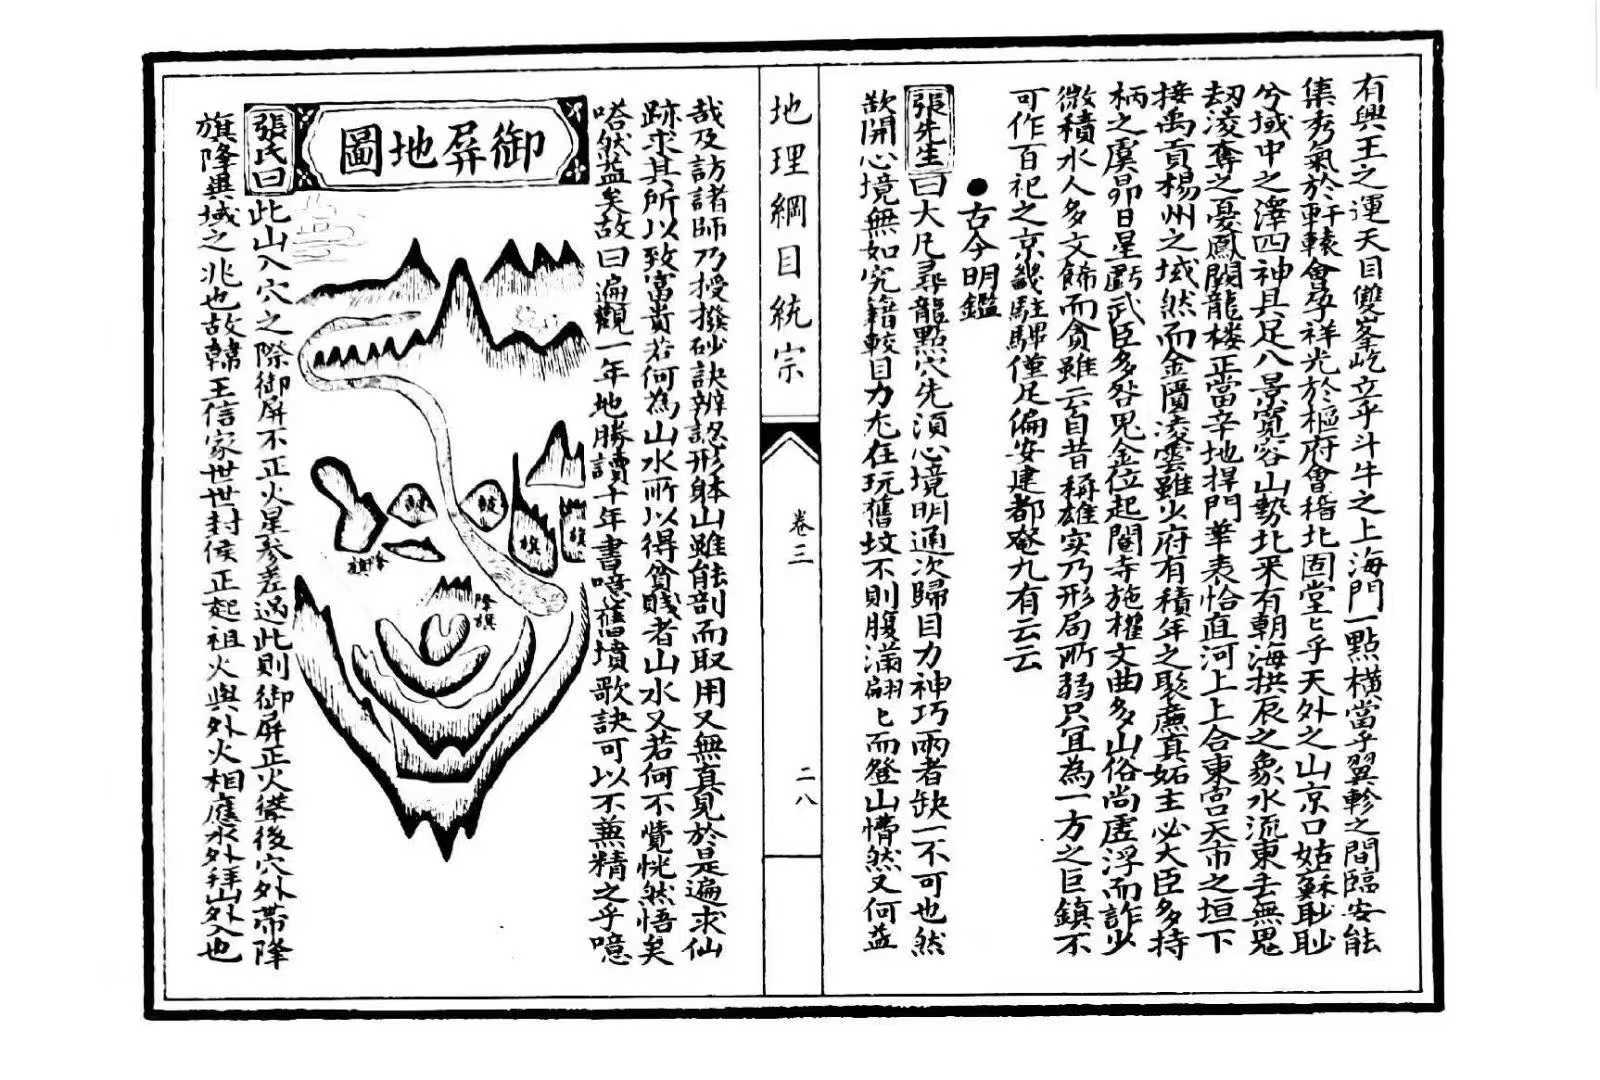 有興王之運天目雙峯屹立乎斗牛之上海門一點橫當乎翼軫之間臨安能
集秀氣於軒轅會孕祥光於樞府會稽北固堂匕乎天外之山京口姑蘇耿耿
兮域中之澤四神具足八景寬容山勢北來有朝海拱辰之象水流東去無鬼
刼淩奪之憂鳳閣龍樓正當辛地捍門華表恰直河上上合東宮天市之垣下
接禹貢楊州之域然而金匱淩雲雖火府有積年之聚廉真妬主必大臣多持
柄之虞昴日星虧武臣多咎鬼金位起閹寺施權文曲多山俗尚虛浮而詐少
微積水人多文飾而貪雖云自昔稱雄实乃形局所弱只宜為一方之巨鎮不
可作百祀之京畿駐驆僅足偏安建都登九有云云
●古今明鑑
張先生曰大凡尋龍點穴先須心境明通次歸目力神巧兩者缺一不可也然
歆開心境無如究籍較目力尤在玩舊坟不則腹滿翩匕而登山懵然又何益
地理綱目統宗
卷三
二八
哉及訪諸師乃授撥砂訣辨認形躰山雖能剖而取用又無真見於是遍求仙
跡求其所以致富貴若何為山水所以得貧賤者山水又若何不覺恍然悟矣
嗒然益矣故曰遍觀一年地勝讀十年書噫舊墳歌訣可以不兼精之乎噫
御屏地圖
鼓
鼓
旗
旗
降旗
降旗
張氏曰此山入穴之際御屏不正火星參差遇此則御屏正火聳後穴外帶降
旗降異域之兆也故韓王信家世世封侯正起祖火與外火相應水外拜山外入也